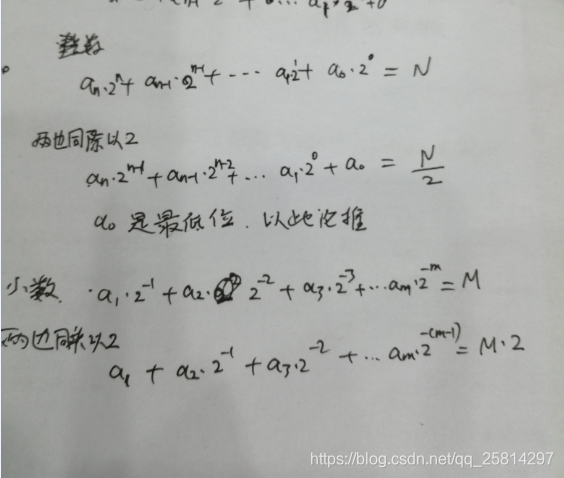 整数
aₙ·2ⁿ + aₙ₋₁·2ⁿ⁻¹ + ··· a₁2¹ + a₀·2⁰ = N
两边同除以2
aₙ·2ⁿ⁻¹ + aₙ₋₁·2ⁿ⁻² + ... a₁·2⁰ + a₀ = N/2
a₀ 是最低位. 以此论推
小数. ·a₁·2⁻¹ + a₂· 2⁻² + a₃·2⁻³ + ··· aₘ·2⁻ᵐ = M
两边同乘以2
a₁ + a₂·2⁻¹ + a₃·2⁻² + ··· aₘ·2⁻⁽ᵐ⁻¹⁾ = M·2
https://blog.csdn.net/qq_25814297